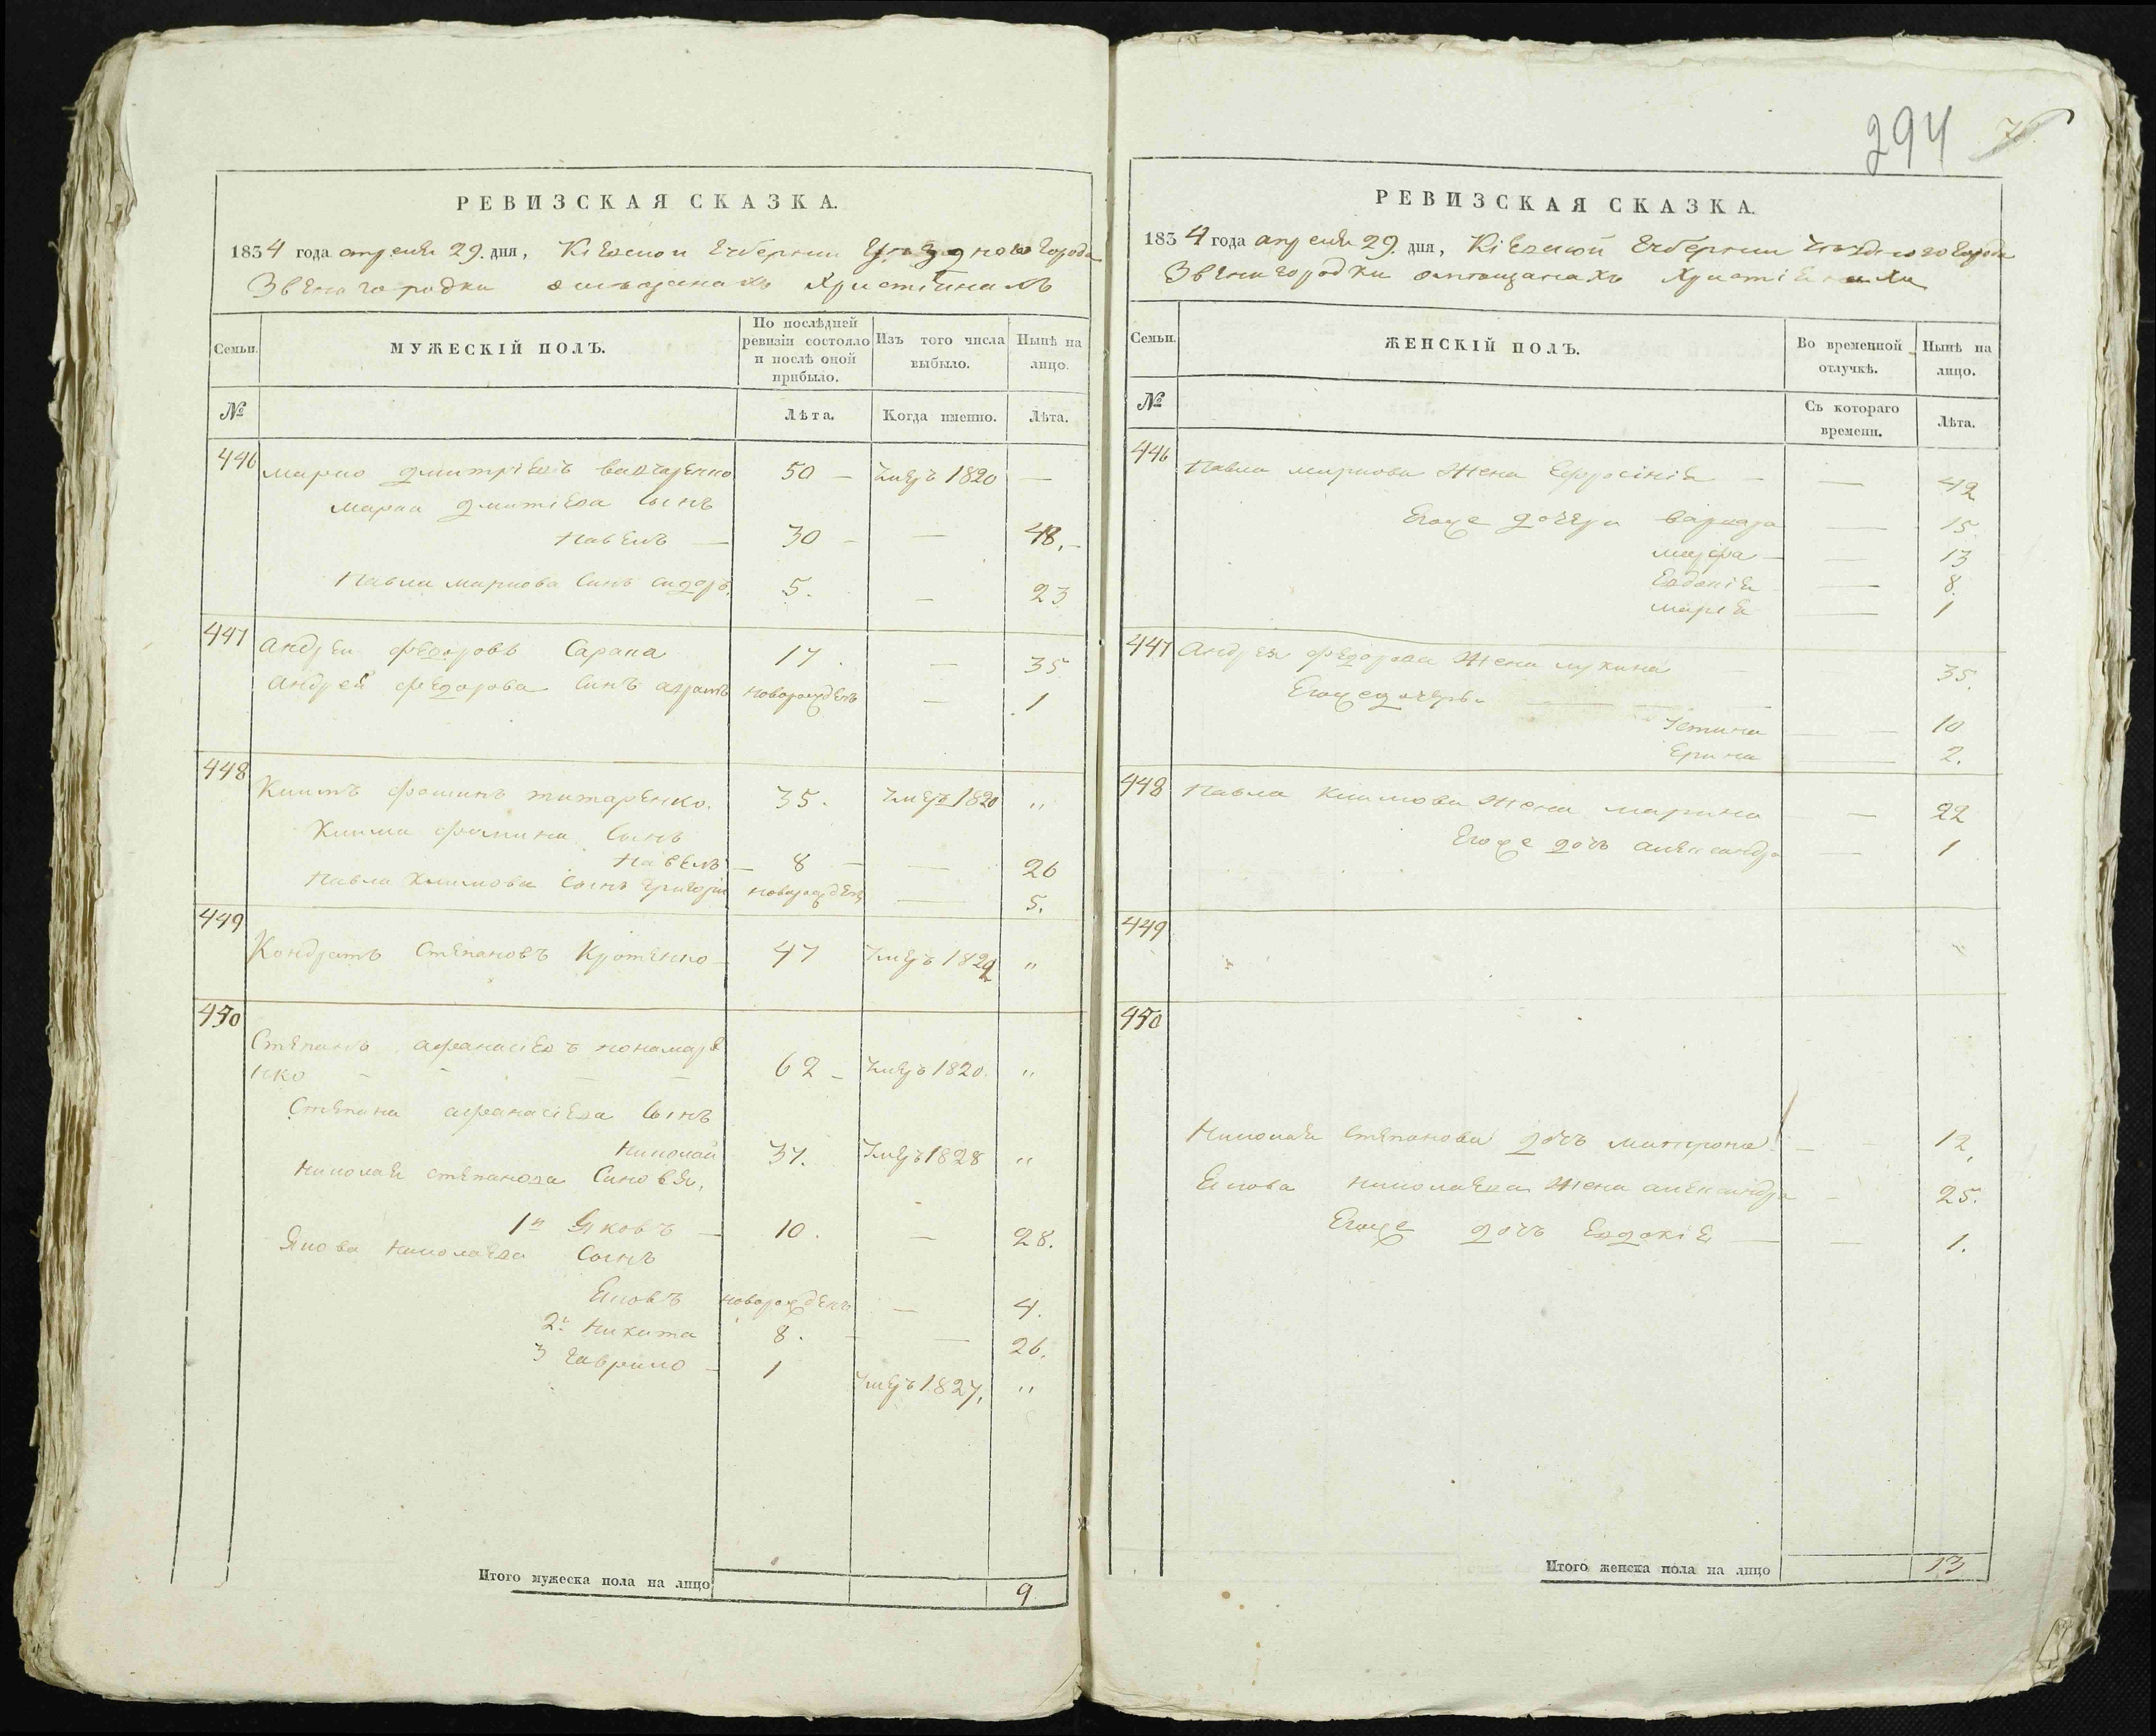 294
РЕВИЗСКАЯ СКАЗКА.
1834 года апреля 29. дня, Кіевской Губернии Уезднаго Города
Звенигородки омѣщанахъ Христіанахъ
Семьи.
МУЖЕСКІЙ ПОЛЪ.
По послѣдней ревизіи состояло и послѣ оной прибыло.
Изъ того числа выбыло.
Нынѣ на лицо.
№
Лѣта.
Когда именно.
Лѣта.
446 Марко Дмитріевъ 50 — Умеръ 1820 —
Марка Дмитіева Сынъ
Павелъ — 30 — — 48. —
Павла Маркова Синъ Сидоръ. 5. — 23
447 Андрей Федоровъ Сарана 17. — 35.
Андрей Федорова Синъ новорожденъ — 1
448 Климъ Фоминъ Титаренко. 35. Умеръ 1820 "
Клима Фомина Сынъ
Павелъ — 8 — — 26
Павла Климова Сынъ Григорій новорожденъ — 5.
449 Кондратъ Степановъ Кротенко 47 Умеръ 1822 "
450 Степанъ Афанасіевъ Понамаре
нко — — — — 62 — Умеръ 1820. "
Степана Афанасіева Сынъ
Николай 37. Умеръ 1828 "
Николая Степанова Синовя.
1й Яковъ — 10. — 28.
Якова Николаева Сынъ
Яковъ новорожденъ — 4.
2й Никита 8. — 26.
3 Гаврило — 1 Умеръ 1827. "
Итого мужеска пола на лицо 9
РЕВИЗСКАЯ СКАЗКА.
1834 года апреля 29. дня, Кіевской Губернии Уезднаго Города
Звенигородки омѣщанахъ Христіанахъ
Семьи.
ЖЕНСКІЙ ПОЛЪ.
Во временной отлучкѣ.
Нынѣ на лицо.
№
Съ котораго времени.
Лѣта.
446 Павла Маркова Жена Ефросінія — — 42
Егоже дочери Варвара — 15.
Марфа — — 13
Евдокія — 8.
Марія — 1
447 Андрея Федорова Жена Лукина 35.
Егоже дочерьи — — —
Устина — — 10
Ерина — 2.
448 Павла Климова Жена Марина — 22
Егоже дочъ Александра — 1
449
450
Николая Степанова дочъ Матрона — — 12.
Якова Николаева Жена Александра — 25.
Егоже дочъ Евдокія — — 1.
Итого женска пола на лицо 13